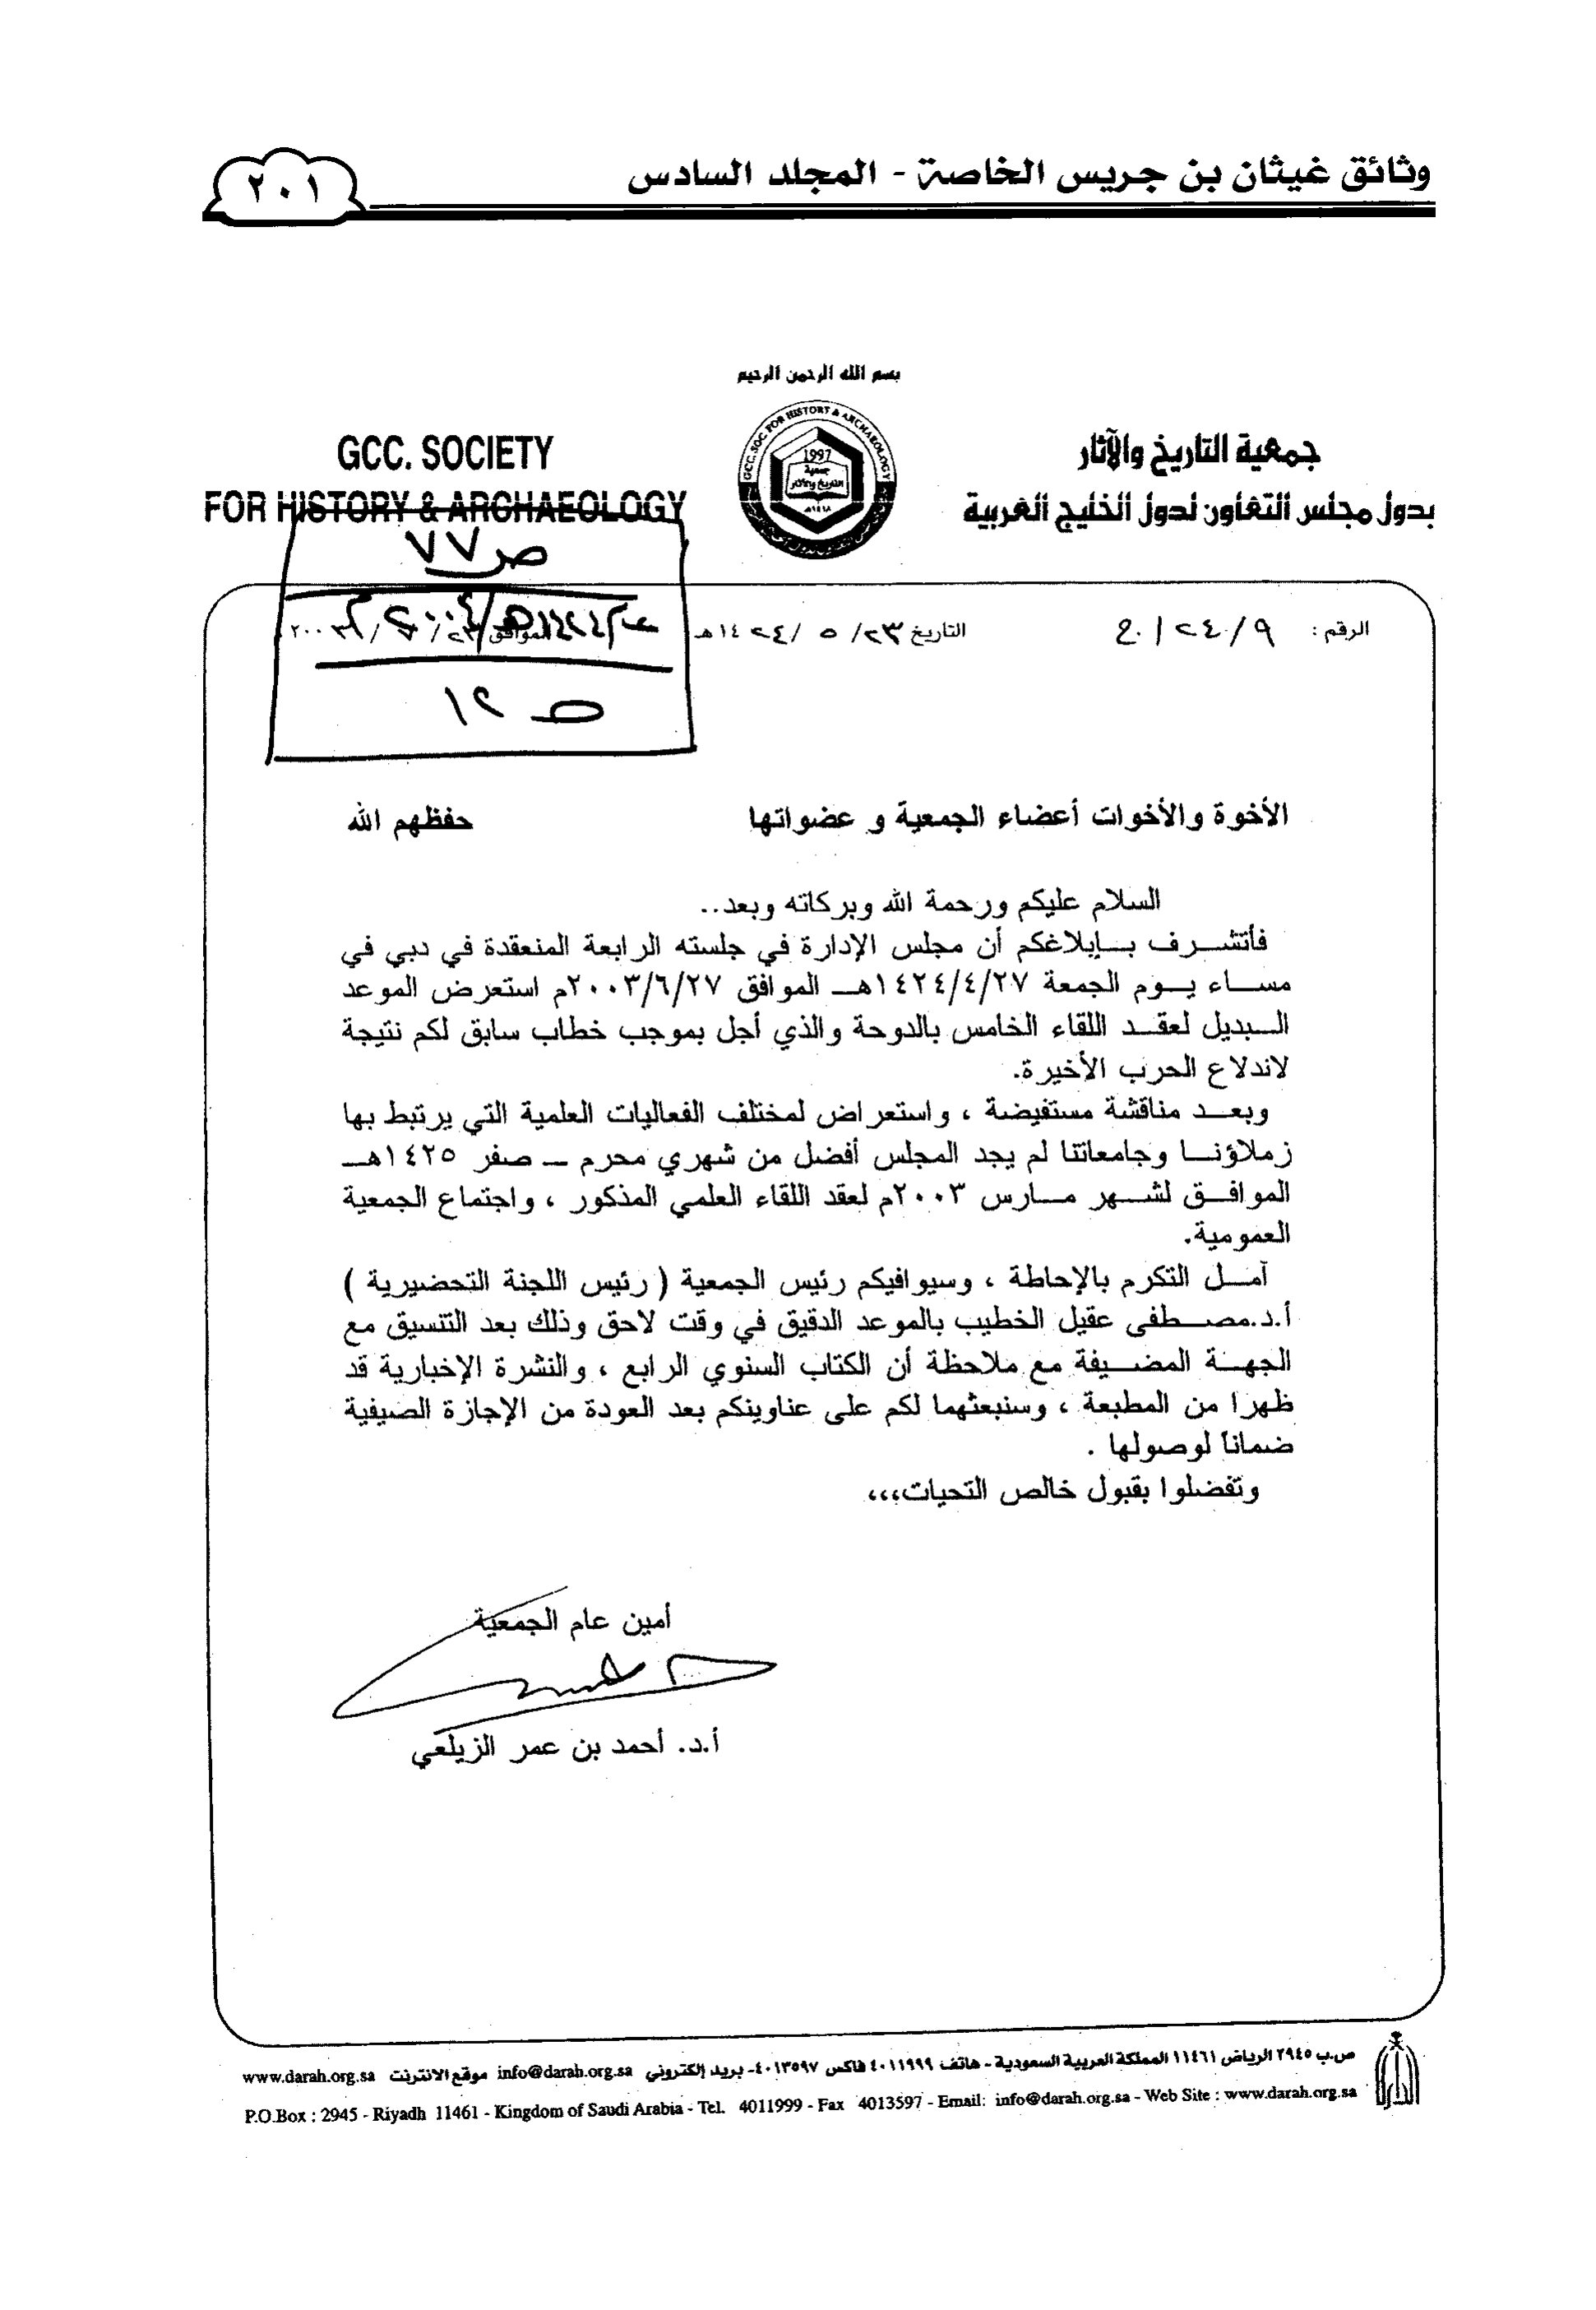 وثائق غيثان بن جريس الخاصة - المجلد السادس
٢٠١
بسم الله الرحمن الرحيم
جمعية التاريخ والآثار
بدول مجلس التعاون لدول الخليج العربية
GCC. SOC. FOR HISTORY & ARCHAEOLOGY
1997
جمعية
التاريخ والآثار
١٤١٨هـ
GCC. SOCIETY
FOR HISTORY & ARCHAEOLOGY
ص ٧٧
ص ١٢
الرقم : ٢٤/٩/ج
التاريخ ٢٣/ ٥ /١٤٢٤هـ
الموافق
الأخوة والأخوات أعضاء الجمعية و عضواتها حفظهم الله
السلام عليكم ورحمة الله وبركاته وبعد..
فأتشرف بإبلاغكم أن مجلس الإدارة في جلسته الرابعة المنعقدة في دبي في
مساء يوم الجمعة ١٤٢٤/٤/٢٧هـ الموافق ٢٠٠٣/٦/٢٧م استعرض الموعد
البديل لعقد اللقاء الخامس بالدوحة والذي أجل بموجب خطاب سابق لكم نتيجة
لاندلاع الحرب الأخيرة.
وبعد مناقشة مستفيضة ، واستعراض لمختلف الفعاليات العلمية التي يرتبط بها
زملاؤنا وجامعاتنا لم يجد المجلس أفضل من شهري محرم – صفر ١٤٢٥هـ
الموافق لشهر مارس ٢٠٠٣م لعقد اللقاء العلمي المذكور ، واجتماع الجمعية
العمومية.
آمل التكرم بالإحاطة ، وسيوافيكم رئيس الجمعية ( رئيس اللجنة التحضيرية )
أ.د.مصطفى عقيل الخطيب بالموعد الدقيق في وقت لاحق وذلك بعد التنسيق مع
الجهة المضيفة مع ملاحظة أن الكتاب السنوي الرابع ، والنشرة الإخبارية قد
ظهرا من المطبعة ، وسنبعثهما لكم على عناوينكم بعد العودة من الإجازة الصيفية
ضماناً لوصولها .
وتفضلوا بقبول خالص التحيات،،،
أمين عام الجمعية
أ.د. أحمد بن عمر الزيلعي
ص.ب ٢٩٤٥ الرياض ١١٤٦١ المملكة العربية السعودية - هاتف ٤٠١١٩٩٩ فاكس ٤٠١٣٥٩٧- بريد إلكتروني info@darah.org.sa موقع الانترنت www.darah.org.sa
P.O.Box : 2945 - Riyadh 11461 - Kingdom of Saudi Arabia - Tel. 4011999 - Fax 4013597 - Email: info@darah.org.sa - Web Site : www.darah.org.sa